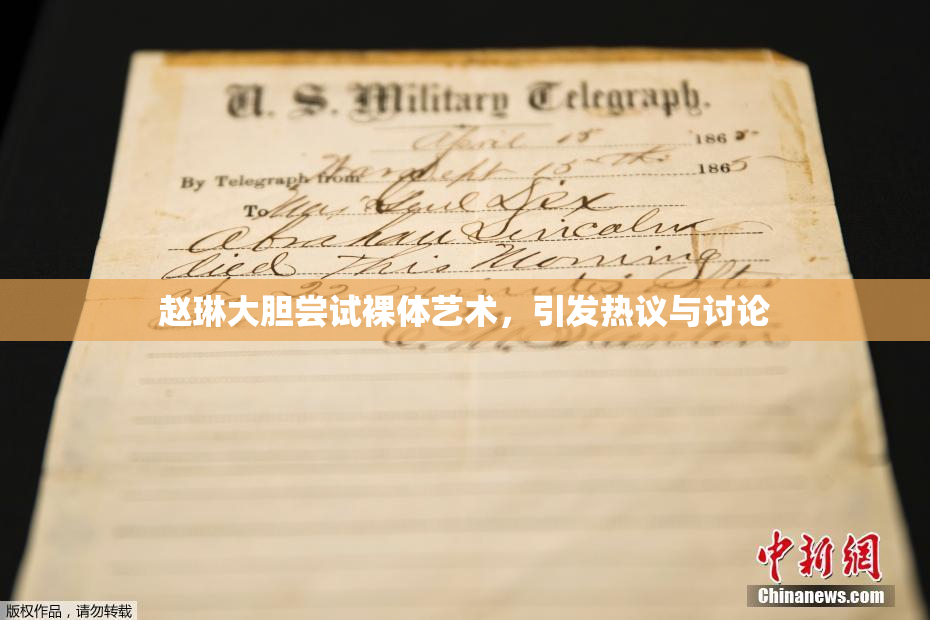 U. S. Military Telegraph.
April 15 1865
By Telegraph from War Dept 15th 1865
To Maj Genl Dix
Abraham Lincoln
died This Morning
at 22 minutes after
赵琳大胆尝试裸体艺术，引发热议与讨论
中新网
Chinanews.com
版权作品，请勿转载